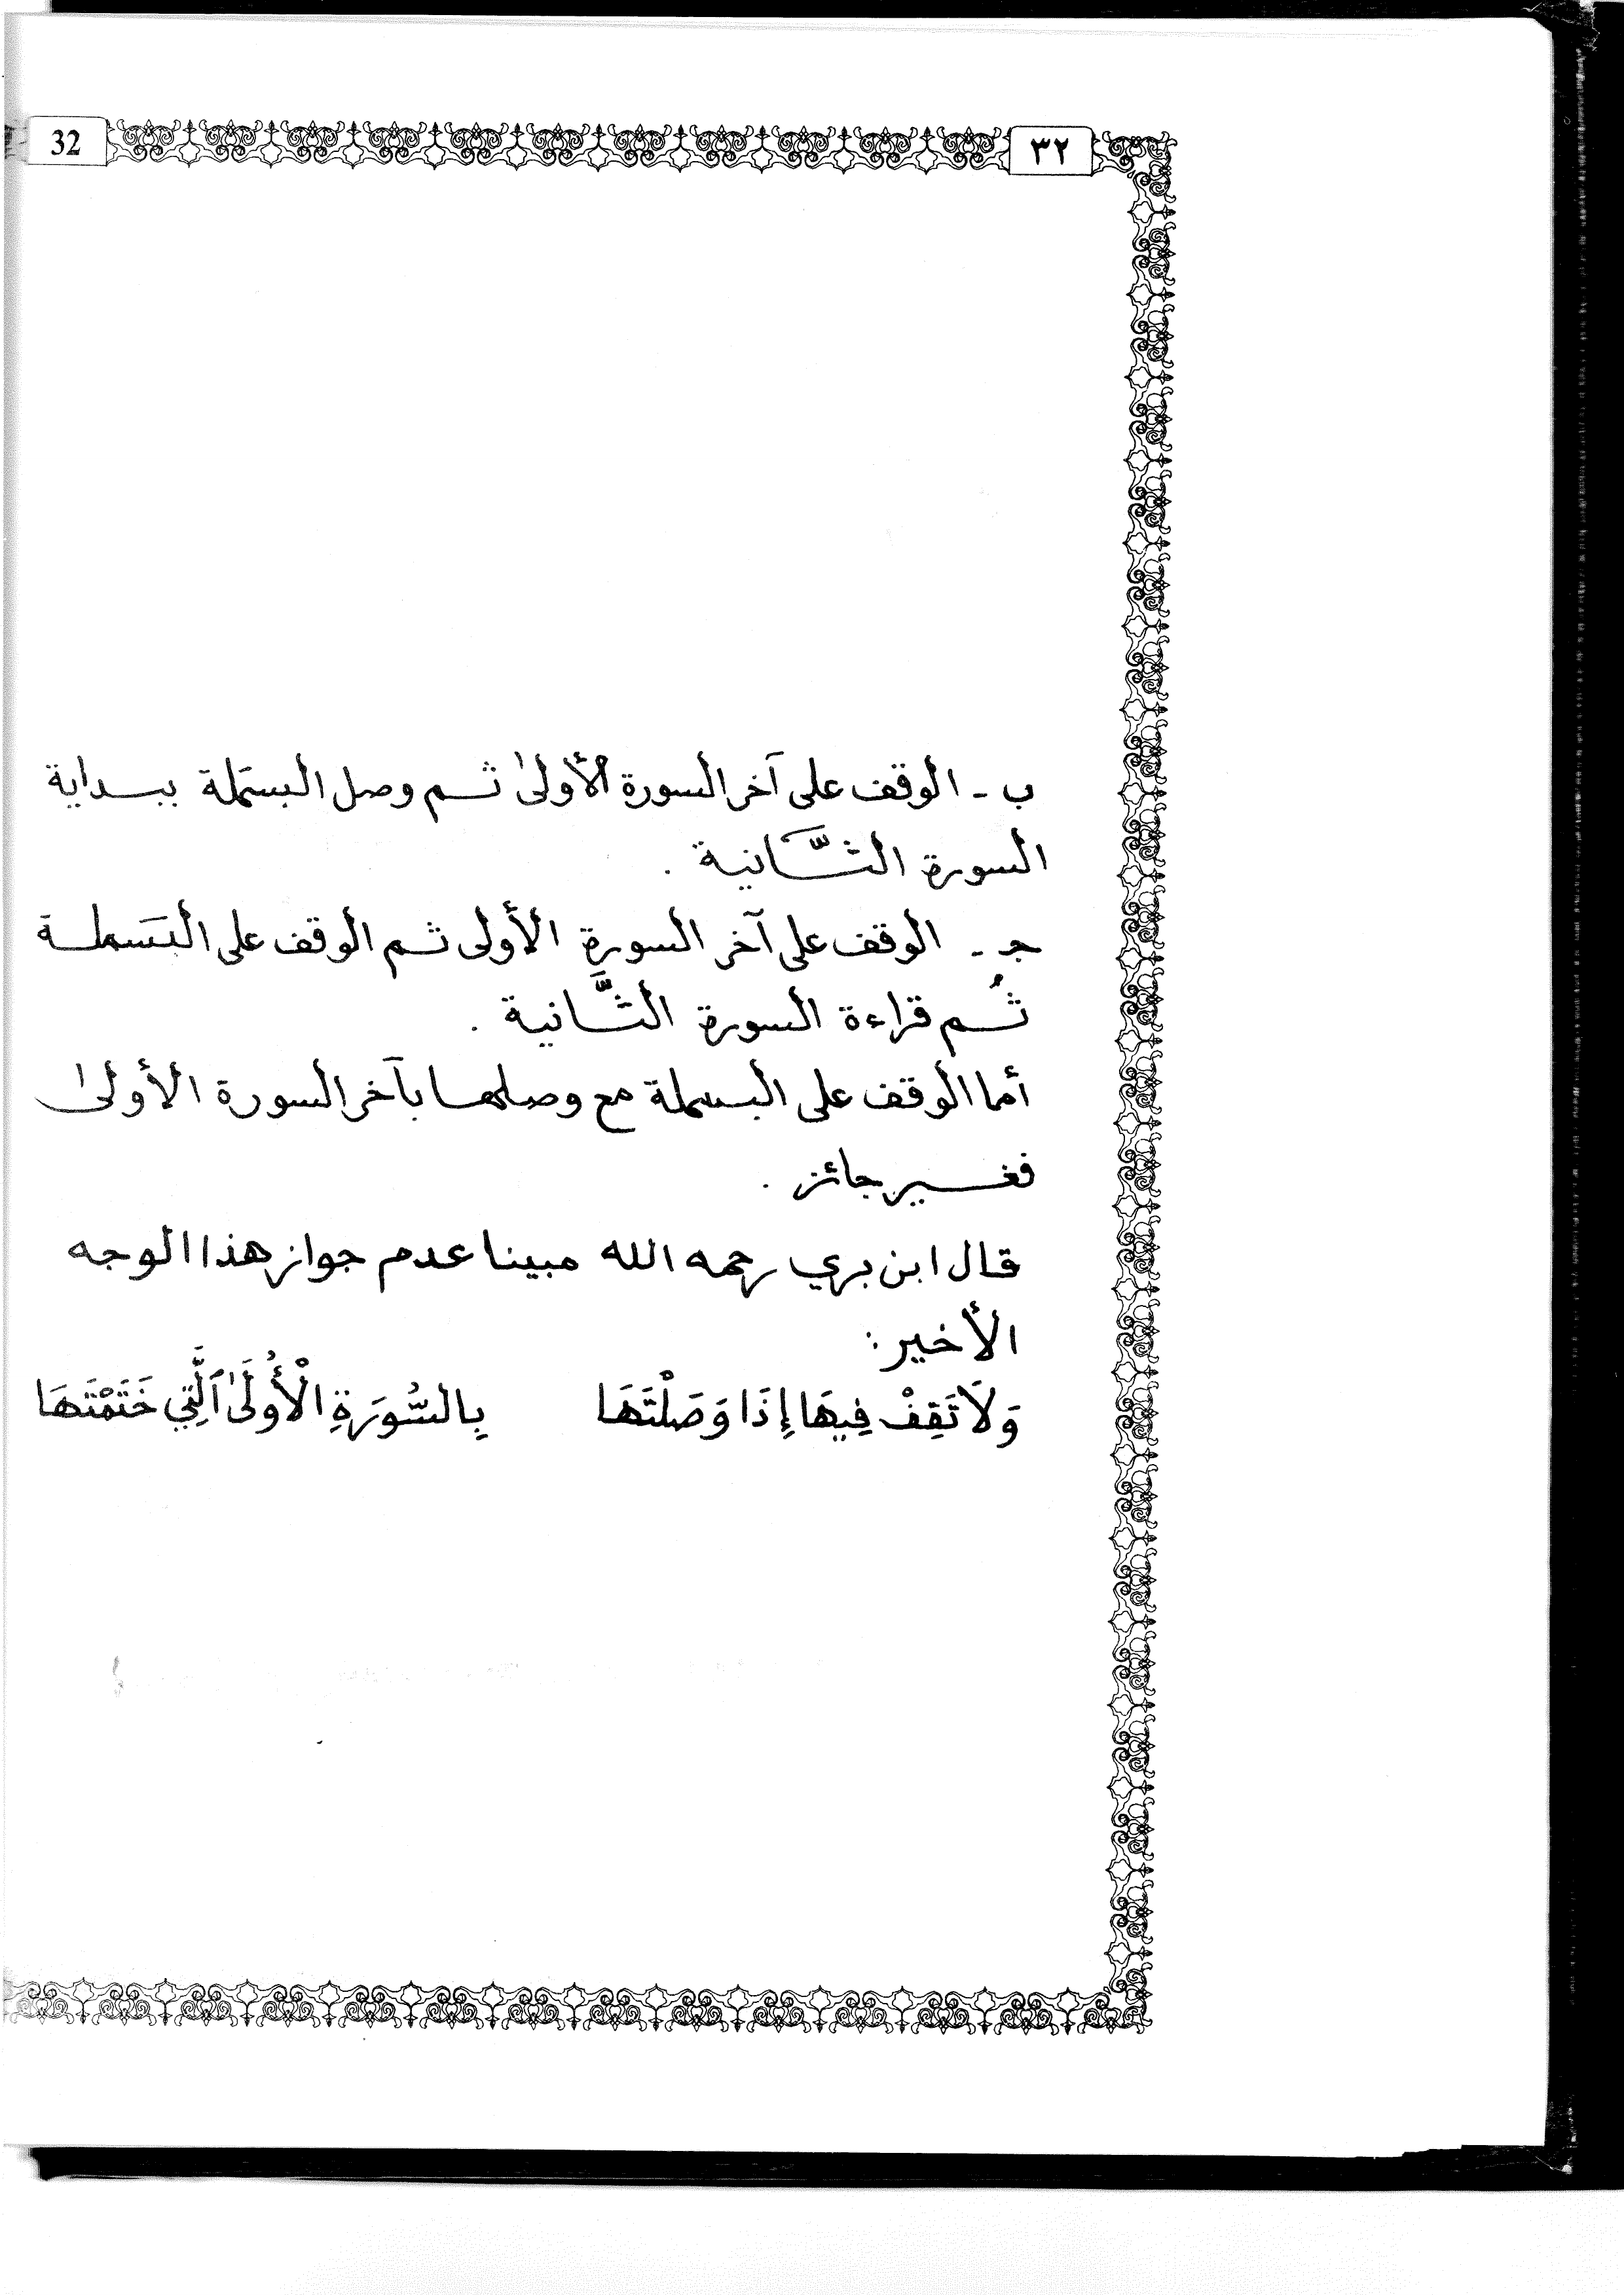 ٣٢
32
ب - الوقف على آخر السورة الأولىٰ ثم وصل البسملة ببداية
السورة الثَّانية .
جـ - الوقف على آخر السورة الأولى ثم الوقف على البَسملة
ثُم قراءة السورة الثَّانية .
أما الوقف على البسملة مع وصلها بآخر السورة الأولىٰ
فغير جائز .
قال ابن بري رحمه الله مبينا عدم جواز هذا الوجه
الأخير :
وَلَا تَقِفْ فِيهَا إِذَا وَصَلْتَهَا بِالسُّورَةِ الْأُولَىٰ ٱلَّتِي خَتَمْتَهَا